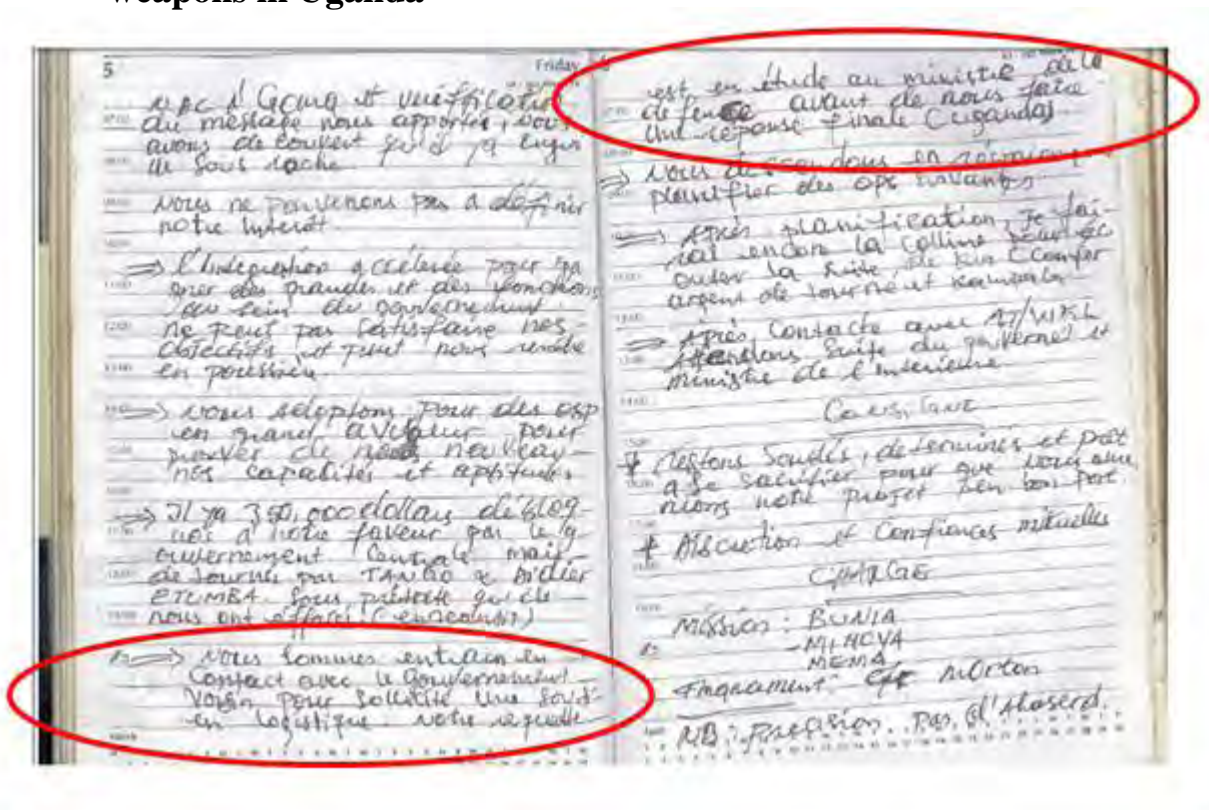 weapons in Uganda
5
Friday
NPC à Goma et vérification
du message nous apporté, nous
avons découvert qu'il y a
de sous
Nous ne parvenons pas à définir
notre interêt.
=> l'Intégration accélerée pour ga
gner des grandes et des fonctions
au sein du gouvernement
ne peut pas satisfaire nos
objectifs et peut nous rendre
en poussière.
=> Nous adoptons pour des osp
en grand pour
prouver de nouveau
nos capacités et aptitudes
=> Il ya 350,000 dollars déblog
ués à notre faveur par le g
ouvernement Centrale mais
détourné par TANGO & Didier
ETUMBA sous prétexte qu'ils
nous ont effacé
=> Nous sommes entrain en
contact avec le Gouvernement
Voisin pour sollicité une
en logistique. Notre requete
est en étude au ministre de la
defence avant de nous faire
une reponse finale (uganda)
=> Nous descendons en
planifier des ops suivants
=> Après planification, je fai-
rai encore la colline pour éc
outer la suite, de Kin
argent détourné et Kampala
=> Après Contacte avec
Attendons Suite du et
ministre de l'interieure.
Consigne
+ Restons Soudés, determinés et prêt
à se sacrifier pour que nous
nions notre projet bon port.
+ Discretion et Confiances mutuelles
CHARGE
Mission : BUNIA
-MINOVA
MEMA
NB : Précision. Pas d'